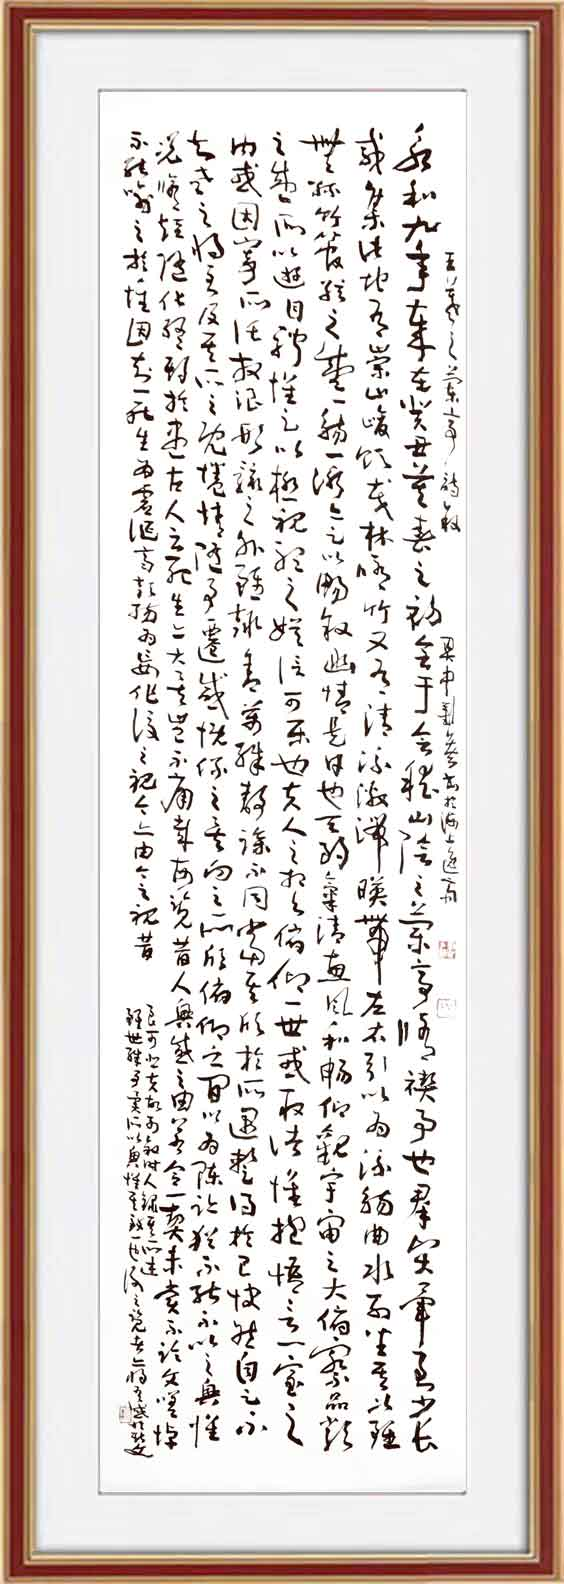 王羲之蘭亭詩敘
永和九年歲在癸丑暮春之初會于會稽山陰之蘭亭脩禊事也群賢畢至少長
咸集此地有崇山峻領茂林脩竹又有清流激湍暎帶左右引以為流觴曲水列坐其次雖
無絲竹管絃之盛一觴一詠亦足以暢敘幽情是日也天朗氣清惠風和暢仰觀宇宙之大俯察品類
之盛所以遊目騁懷足以極視聽之娛信可樂也夫人之相與俯仰一世或取諸懷抱悟言一室之
內或因寄所託放浪形骸之外雖趣舍萬殊靜躁不同當其欣於所遇暫得於己快然自足不
知老之將至及其所之既惓情隨事遷感慨係之矣向之所欣俯仰之間以為陳跡猶不能不以之興懷
況脩短隨化終期於盡古人云死生亦大矣豈不痛哉每覽昔人興感之由若合一契未嘗不臨文嗟悼
不能喻之於懷固知一死生為虛誕齊彭殤為妄作後之視今亦由今之視昔
良可悲夫故列敘時人錄其所述
雖世殊事異所以興懷其致一也後之覽者亦將有感於斯文